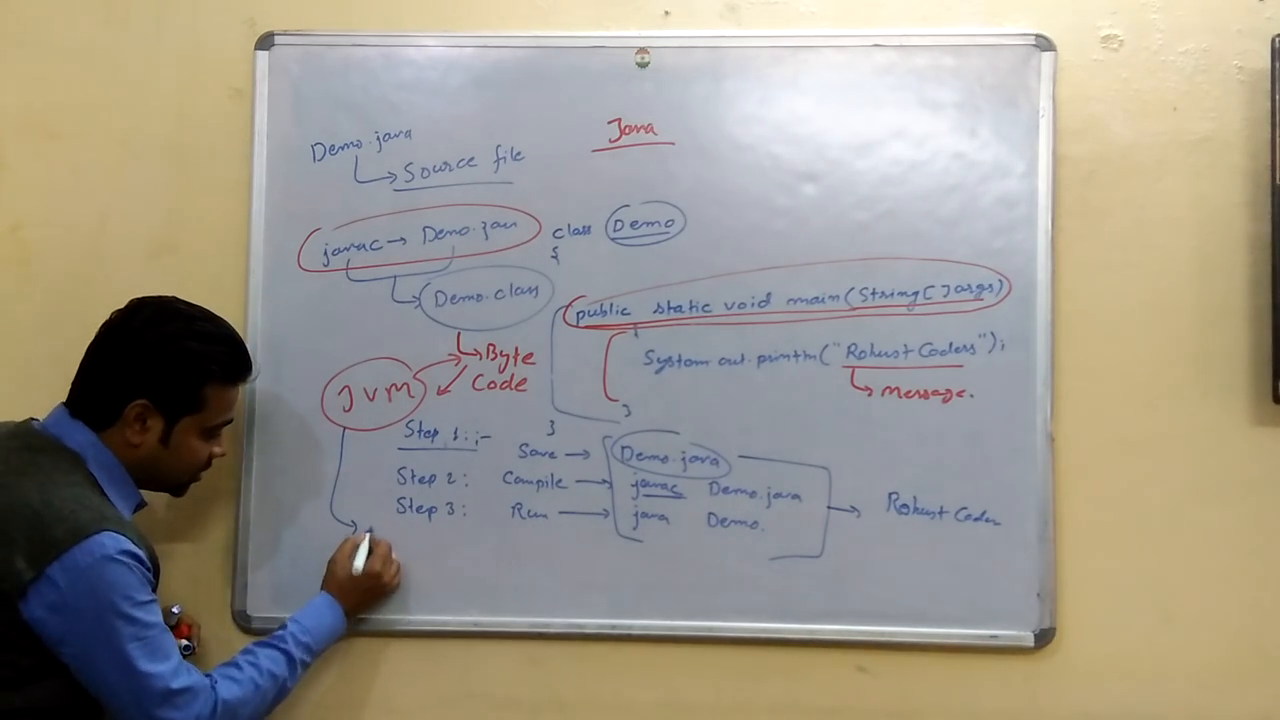 Java
Demo.java
Source file
javac → Demo.java
Demo.class
class Demo
{
public static void main(String[]args)
{
System.out.println("Robust Coders");
Message.
}
}
Byte
Code
JVM
Step 1:;- Save → Demo.java
Step 2: Compile → javac Demo.java
Step 3: Run → java Demo.
→ Robust Coder